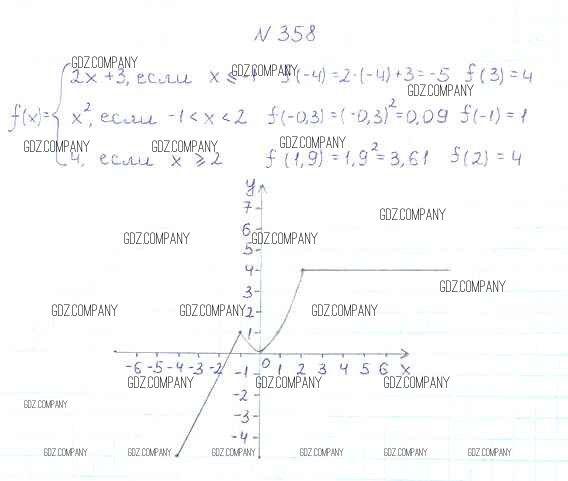 N 358
GDZ.COMPANY
2x+3, если x ≤ GDZ.COMPANY f(-4)=2·(-4)+3=-5 f(3)=4
GDZ.COMPANY
f(x)= x², если -1<x<2 f(-0,3)=(-0,3)²=0,09 f(-1)=1
GDZ.COMPANY GDZ.COMPANY GDZ.COMPANY
4, если x ≥ 2 f(1,9)=1,9²=3,61 f(2)=4
y
7
GDZ.COMPANY
6
GDZ.COMPANY GDZ.COMPANY
5
4
GDZ.COMPANY
3
GDZ.COMPANY GDZ.COMPANY GDZ.COMPANY
2
1
-6 -5 -4 -3 -2 0 1 2 3 4 5 6 x
-1
GDZ.COMPANY GDZ.COMPANY GDZ.COMPANY
-2
GDZ.COMPANY
-3
-4
GDZ.COMPANY GDZ.COMPANY GDZ.COMPANY GDZ.COMPANY GDZ.COMPANY GDZ.COMPANY